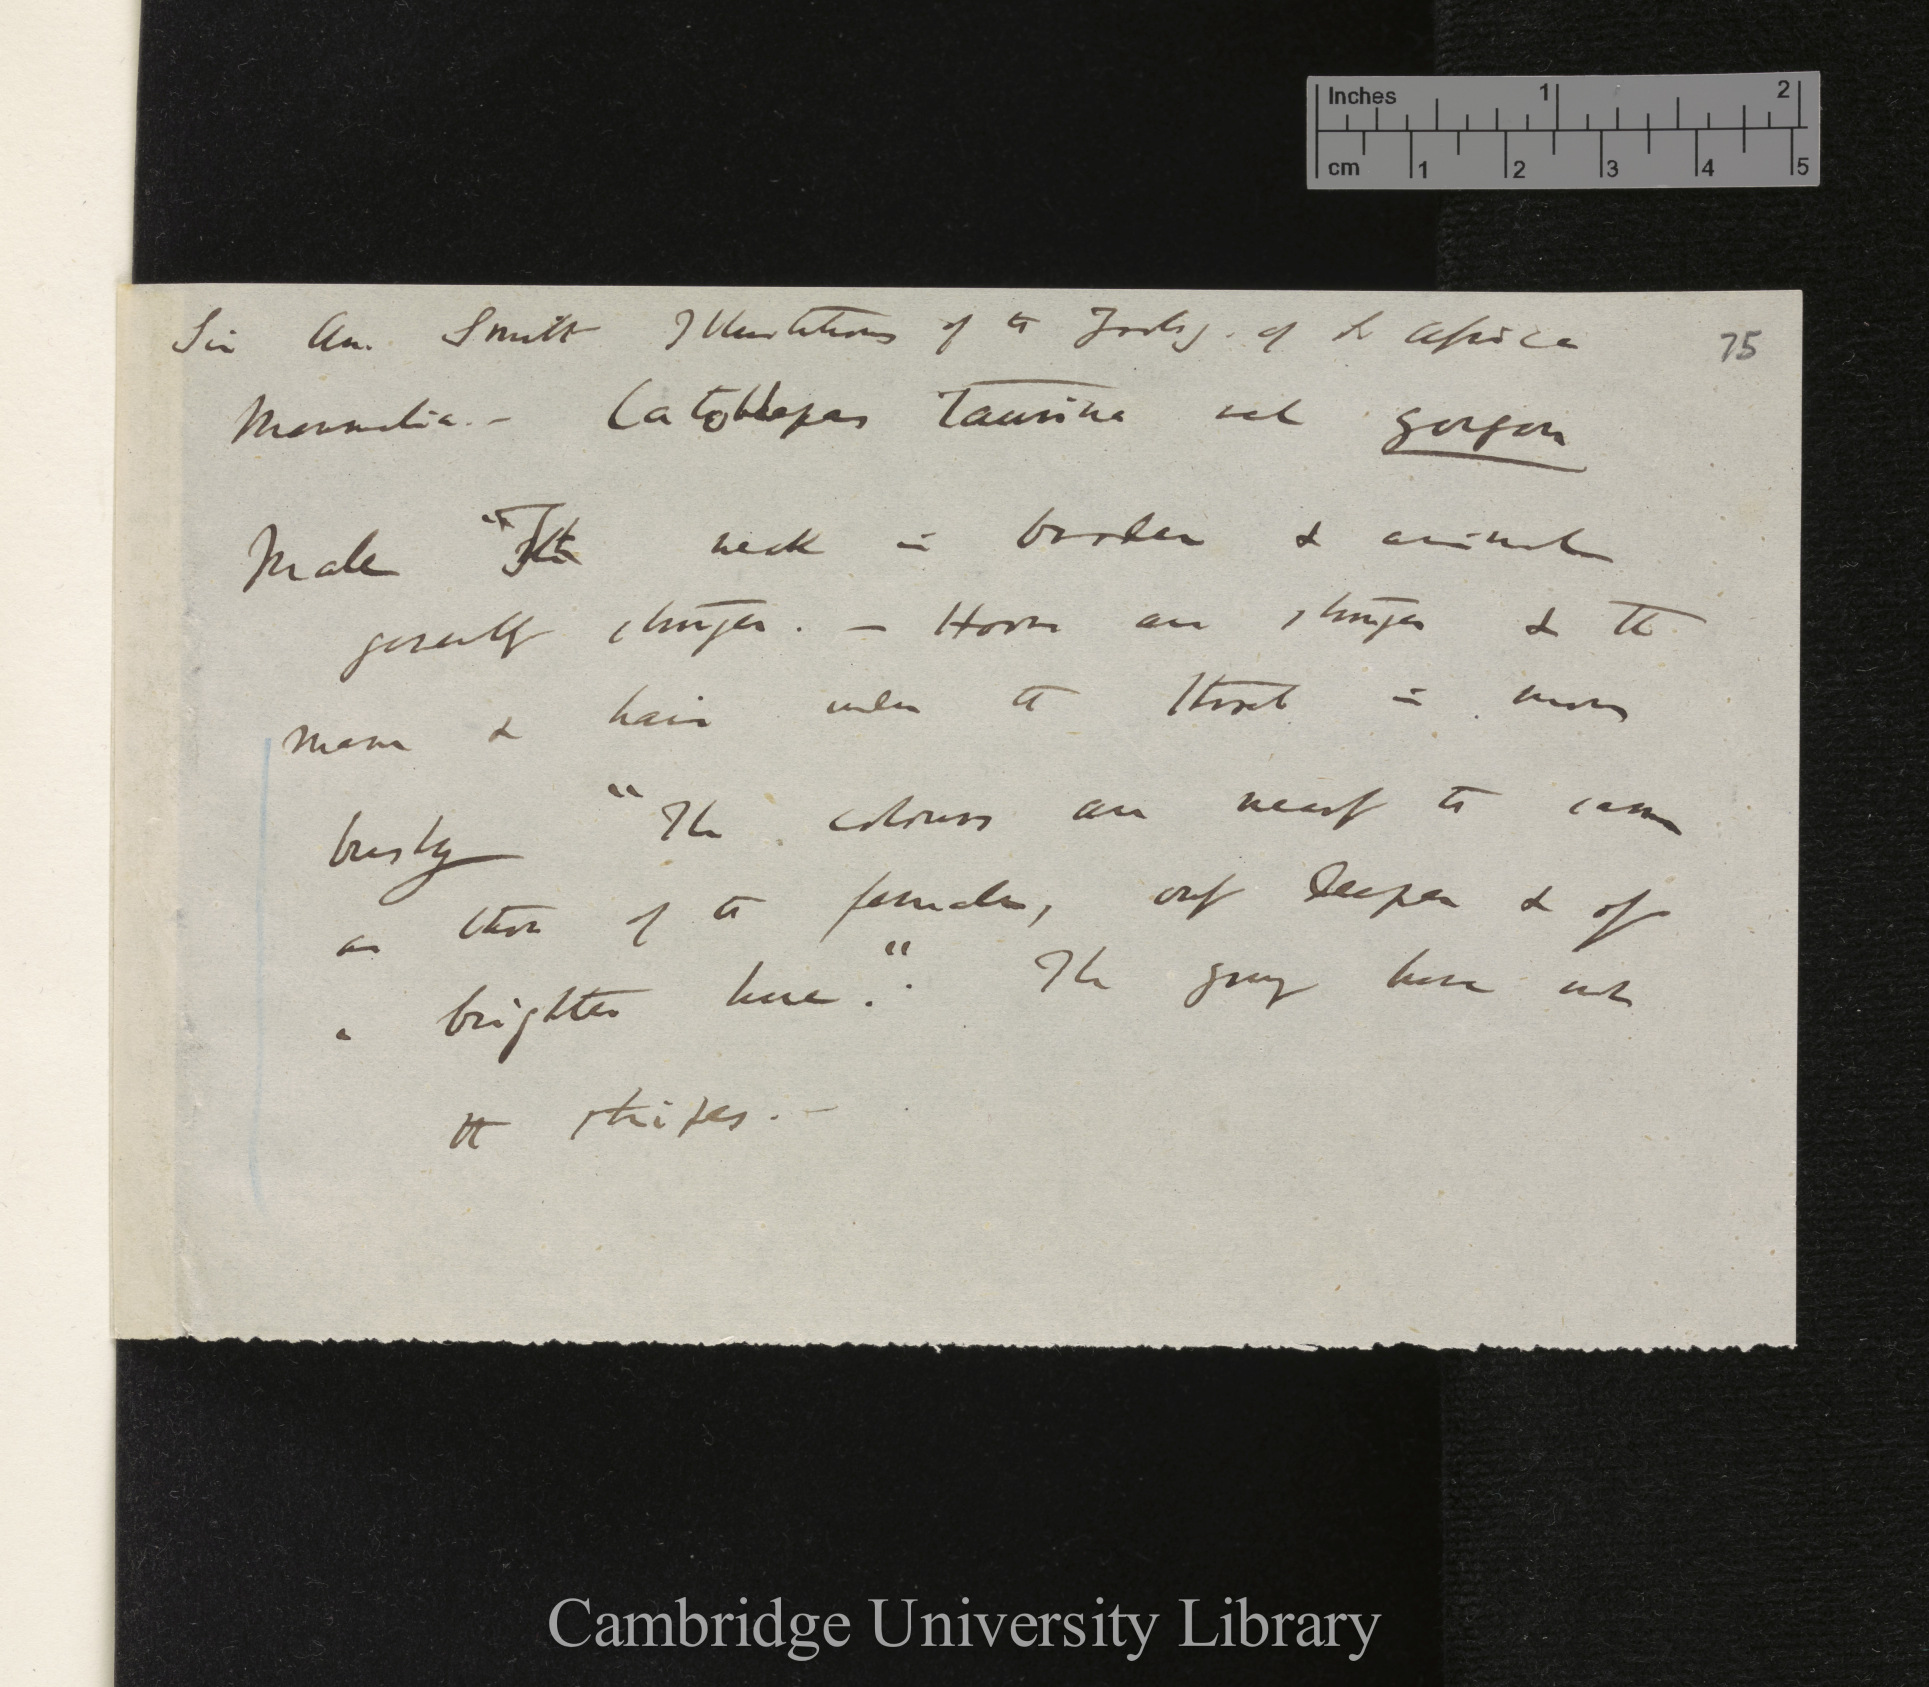 Inches 1 2
cm 1 2 3 4 5
Sir An. Smith Illustrations of the Zoolog. of S. Africa 75
Mammalia. — Catoblepas Taurina vel gorgon
Male "The neck is broader & animal
generally stronger. — Horns are stronger & the
mane & hair under the throat is more
bushy "The colours are nearly the same
as those of the females, only deeper & of
a brighter hue.". The young have not
the stripes. —
Cambridge University Library